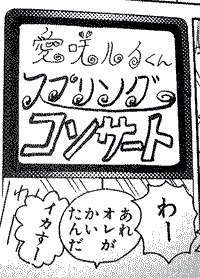 愛咲ルるくん
スプリング
コンサート
わー
あれ
オレが
かい
たんだ
イカすー